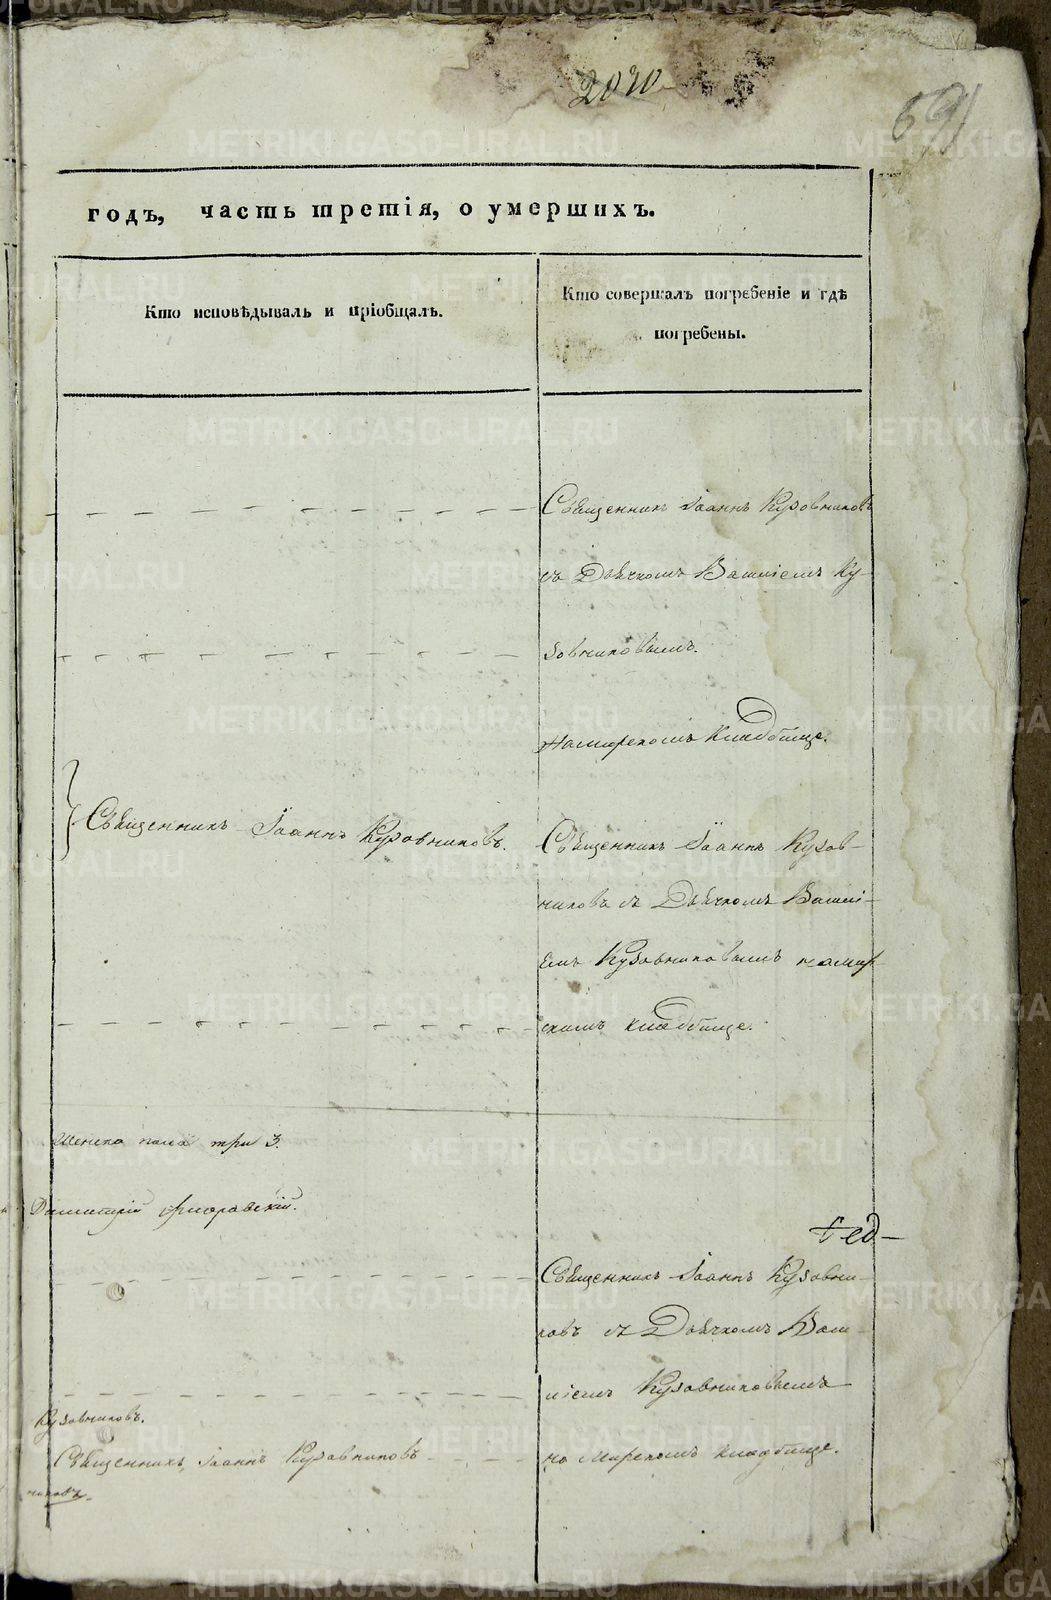 2020
69
годъ, часть третія, о умершихъ.
Кто исповѣдывалъ и пріобщалъ.
Кто совершалъ погребеніе и гдѣ
погребены.
Священникъ Іоаннъ Кузовниковъ
съ Дьячкомъ Василіемъ Ку-
зовниковымъ.
На мирскомъ кладбище.
Священникъ Іоаннъ Кузовниковъ.
Священникъ Іоаннъ Кузов-
никовъ съ Дьячкомъ Василі-
емъ Кузовниковымъ на мир-
скомъ кладбище.
Женска пола три 3.
Димитрій
Священникъ Іоаннъ Кузовни-
ковъ съ Дьячкомъ Васи-
ліемъ Кузовниковымъ
Кузовниковъ.
Священникъ Іоаннъ Кузовниковъ
на мирскомъ кладбище.
никовъ
METRIKI.GASO-URAL.RU